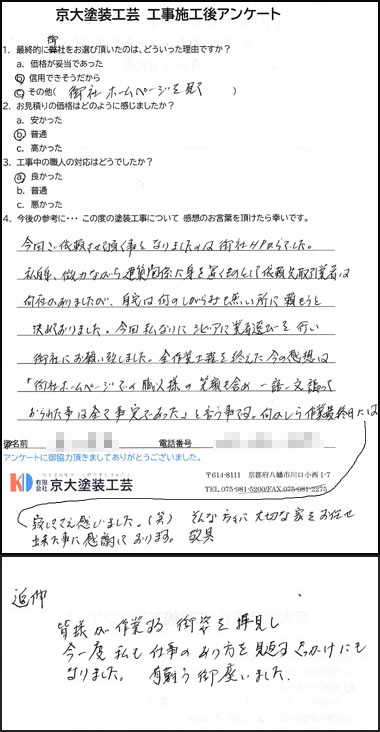 京大塗装工芸 工事施工後アンケート
御
1. 最終的に弊社をお選び頂いたのは、どういった理由ですか?
a. 価格が妥当であった
b. 信用できそうだから
c. その他( 御社ホームページを見て )
2. お見積りの価格はどのように感じましたか?
a. 安かった
b. 普通
c. 高かった
3. 工事中の職人の対応はどうでしたか?
a. 良かった
b. 普通
c. 悪かった
4. 今後の参考に・・・ この度の塗装工事について 感想のお言葉を頂けたら幸いです。
今回ご依頼させて頂く事となりましたのは御社HPからでした。
私自身、微力ながら建築関係に身を置くものとして依頼先取引業者は
何社かありましたが、自宅は何のしがらみも無い所に頼もうと
決めておりました。今回私なりにシビアに業者選びを行い
御社にお願い致しました。全作業工程を終えた今の感想は
「御社ホームページでの職人様の笑顔も含め一語一文謳って
おられた事は全て事実であった」と言う事です。何かしら作業最終日には
御名前 電話番号
アンケートに御協力頂きましてありがとうございました。
KD 有限会社 京大塗装工芸
〒614-8111 京都府八幡市川口小西1-7
TEL.075-981-5200/FAX.075-981-2275
寂しささえ感じました。(笑) そんな方々に大切な家をお任せ
出来た事に感謝しております。 敬具
追伸
皆様が作業する御姿を拝見し
今一度私も仕事のあり方を見返すきっかけにも
なりました。 有難う御座いました。